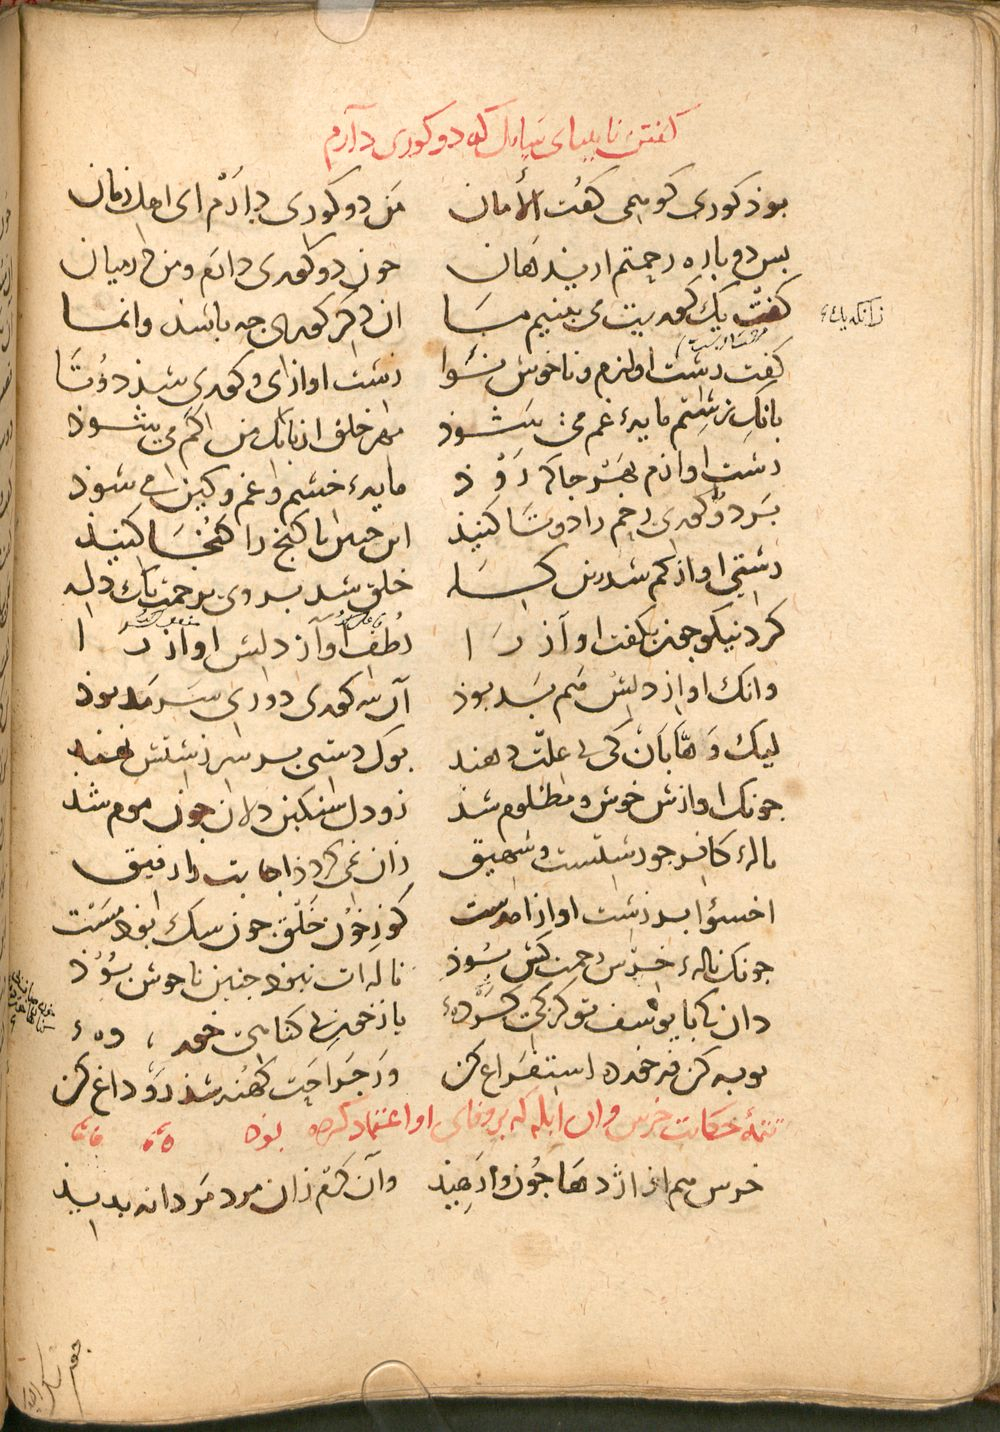 کفتن نابینای سایل که دو کوری دارم
بوذ کوری کو همی کفت الأمان من دو کوری دارم ای اهل زمان
بس دو باره رحمتم ارید هان جون دو کوری دارم و من در میان
کفت یک کوریت می بینیم ما ان دکر کوری جه باشذ وانما
زانکه یک
کفت زشت اوازم و ناخوش نوا زشت اوازی و کوری شذ دوتا
بانک زشتم مایهٔ غم می شوذ مهر خلق از بانک من کم می شوذ
زشت اوازم بهر جا که روذ مایهٔ خشم و غم و کین می شوذ
بر دو کوری رحم را دوتا کنیذ این جنین ناکنج را کنجا کنیذ
زشتی اواز کم شد زین کله خلق شد بر وی برحمت یک دله
کرد نیکو جون بکفت او راز را لطف اواز دلش اواز را
وانک اواز دلش هم بد بوذ آن سه کوری دوری سرمد بوذ
لیک وهابان که بی علت دهند بوک دستی بر سر زشتش نهند
جونک اوازش خوش و مظلوم شذ زو دل سنکین دلان جون موم شد
نالهٔ کافر جو زشتست و شهیق زان نمی کردذ اجابت را رفیق
اخسؤا بر زشت اواز امدست کو ز خون خلق جون سک بوذ مست
جونک نالهٔ خرس رحمت کش بوذ ناله ات نبوذ جنین ناخوش بوذ
دان که با یوسف تو کرکی کردهٔ یا ز خون بی کناهی خوردهٔ
توبه کن وز خورده استفراغ کن ور جراحت کهنه شذ رو داغ کن
تتمهٔ حکایت خرس و ان ابله که بر وفای او اعتماد کرده بوذ
خرس هم از اژدها جون وارهیذ وآن کرم زان مرد مردانه بدید